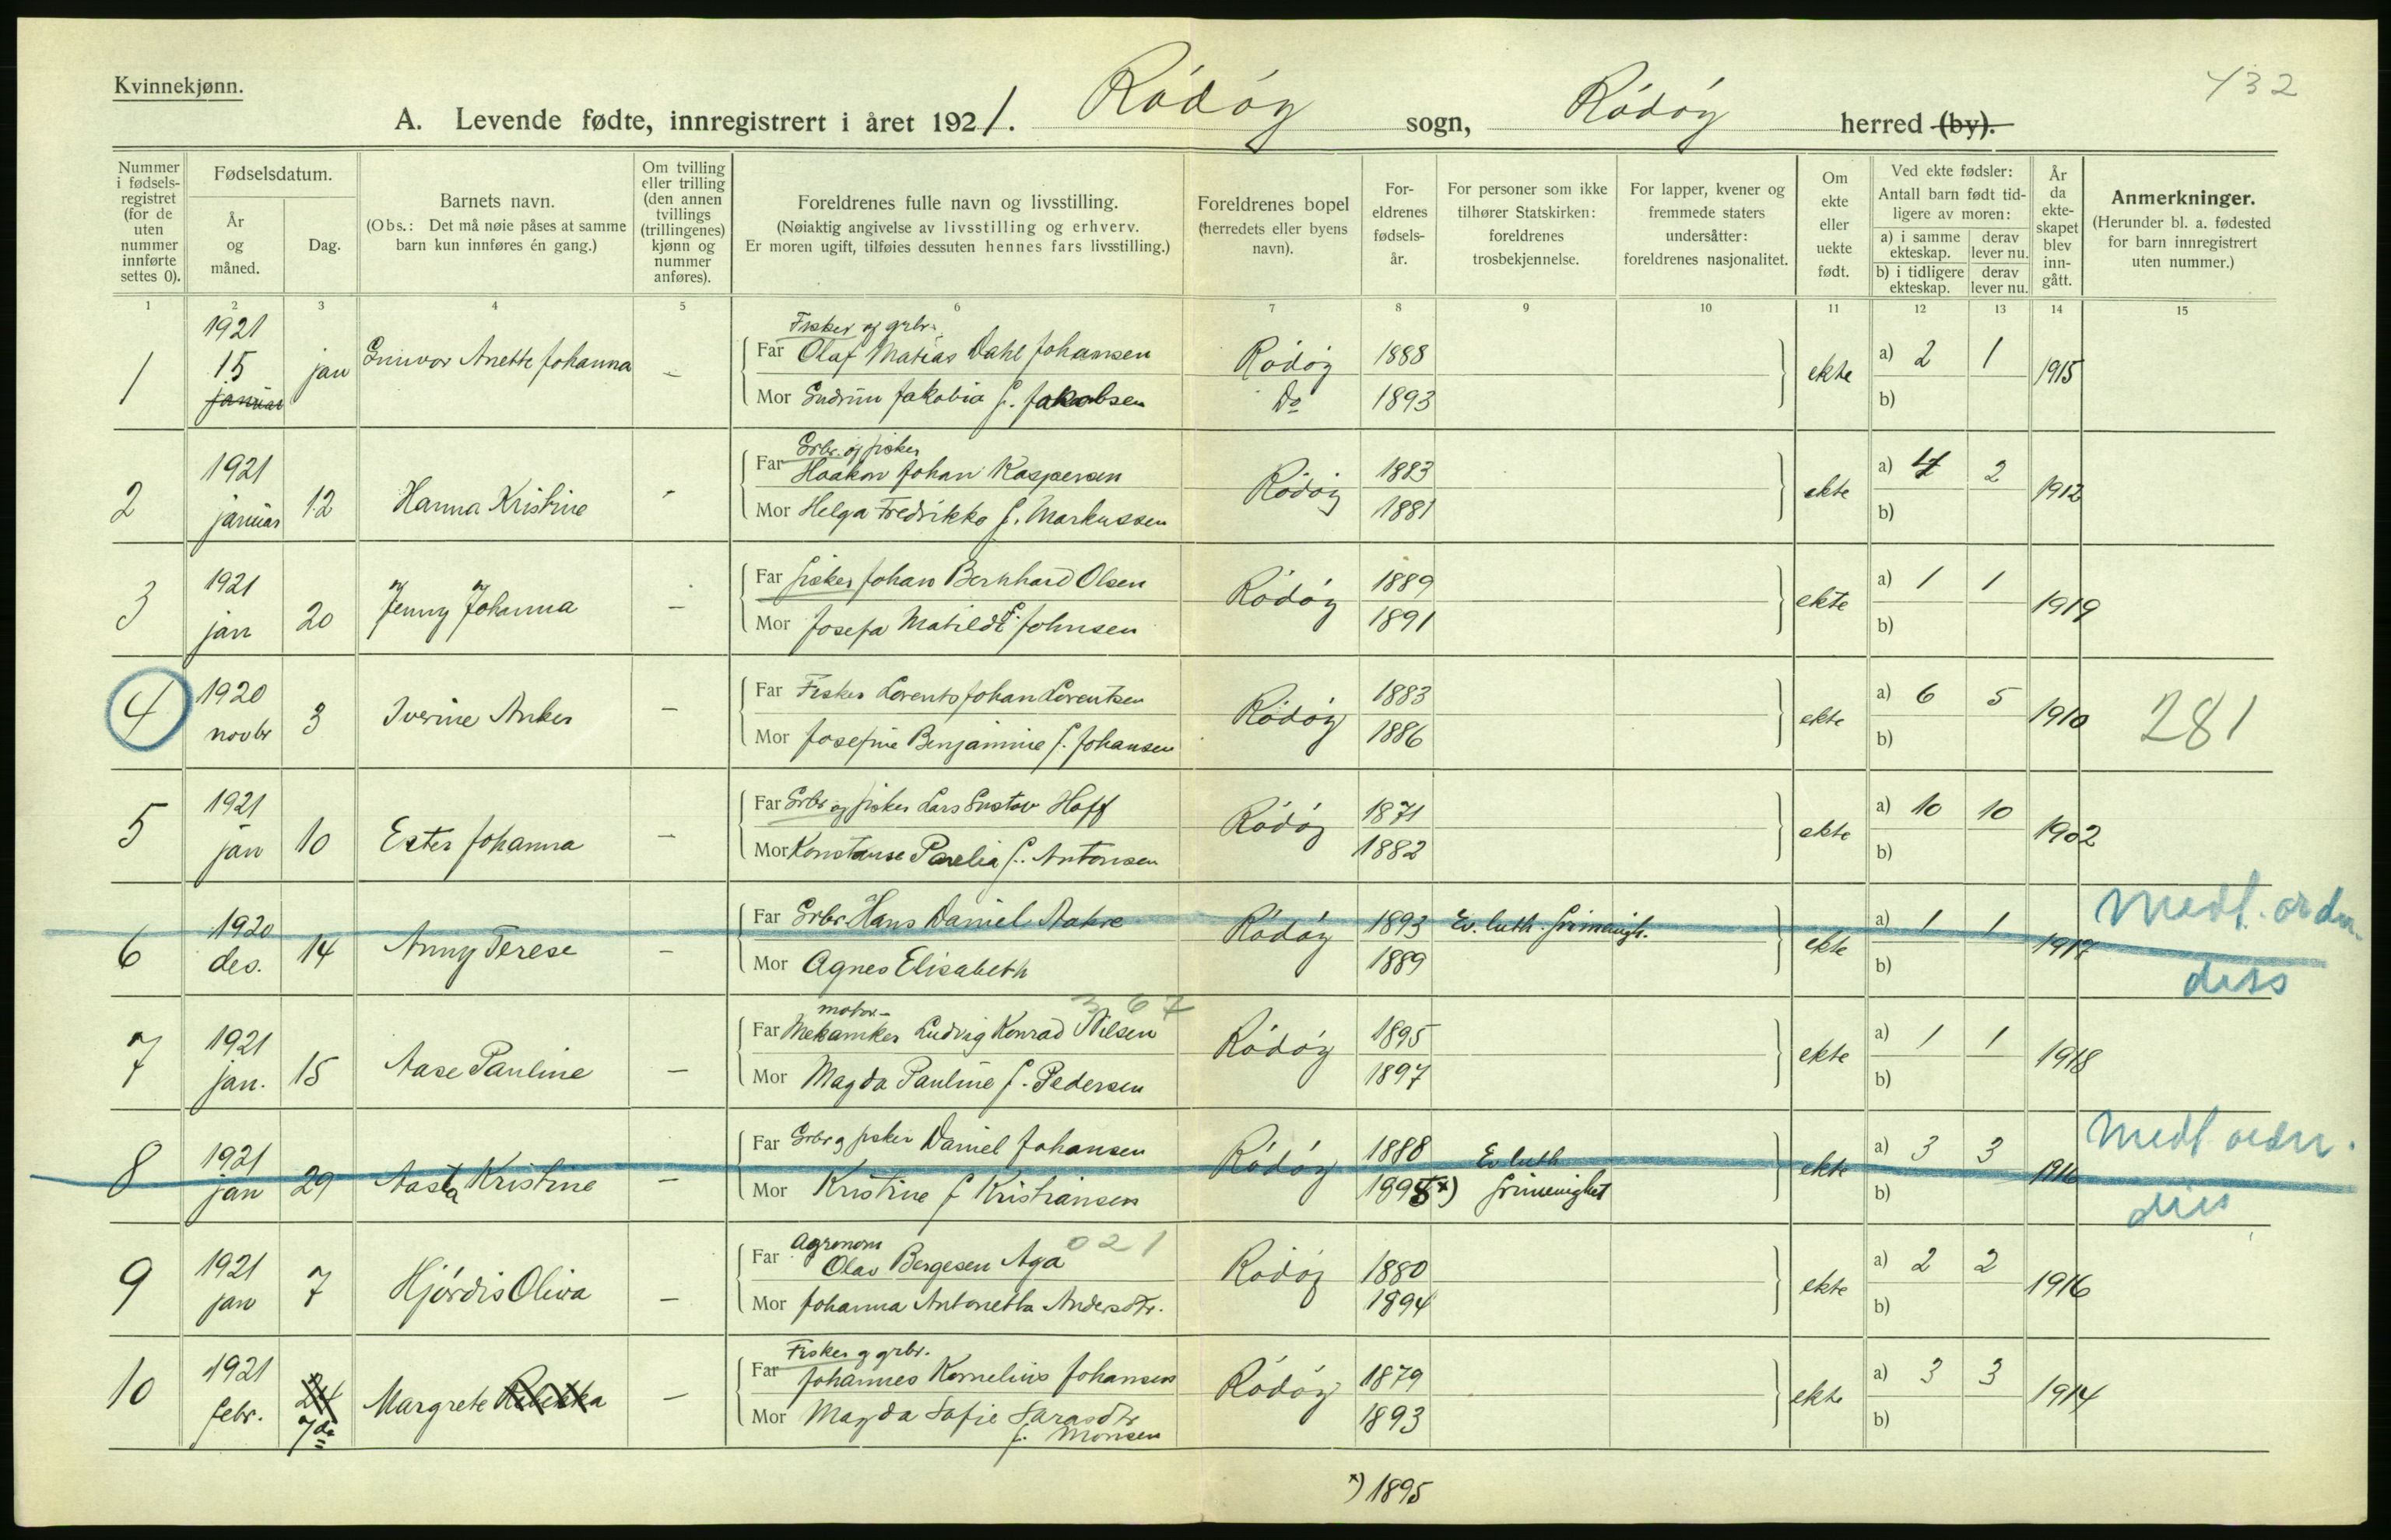 Kvinnekjønn.
432
A. Levende fødte, innregistrert i året 1921. Rödöy sogn, Rödöy herred (by).
Nummer i fødselsregistret (for de uten nummer innførte settes 0).
Fødselsdatum.
År og måned.
Dag.
Barnets navn.
(Obs.: Det må nøie påses at samme barn kun innføres én gang.)
Om tvilling eller trilling (den annen tvillings (trillingenes) kjønn og nummer anføres).
Foreldrenes fulle navn og livsstilling.
(Nøiaktig angivelse av livsstilling og erhverv.
Er moren ugift, tilføies dessuten hennes fars livsstilling.)
Foreldrenes bopel (herredets eller byens navn).
Foreldrenes fødselsår.
For personer som ikke tilhører Statskirken: foreldrenes trosbekjennelse.
For lapper, kvener og fremmede staters undersåtter: foreldrenes nasjonalitet.
Om ekte eller uekte født.
Ved ekte fødsler: Antall barn født tidligere av moren:
a) i samme ekteskap. derav lever nu.
b) i tidligere ekteskap. derav lever nu.
År da ekteskapet blev inngått.
Anmerkninger.
(Herunder bl. a. fødested for barn innregistrert uten nummer.)
1 2 3 4 5 6 7 8 9 10 11 12 13 14 15
1 1921 15 januar jan Gunvor Anette Johanna –
Fisker og grbr.
Far Olaf Matias Dahl Johansen Rödöy 1888 ekte a) 2 1 1915
Mor Gudrun Jakobia f. Jakobsen Do 1893 b)
2 1921 januar 12 Hanna Kristine -
Grbr. og fisker
Far Haakon Johan Kaspersen Rödöy 1883 ekte a) 4 2 1912
Mor Helga Fredrikke f. Markussen 1881 b)
3 1921 jan 20 Jenny Johanna –
Far fisker Johan Bernhard Olsen Rödöy 1889 ekte a) 1 1 1919
Mor Josefa Matilde f. Johnsen 1891 b)
4 1920 novbr 3 Iverine Anker –
Far Fisker Lorents Johan Lorentsen Rödöy 1883 ekte a) 6 5 1910 281
Mor Josefine Benjamine f. Johansen 1886 b)
5 1921 jan 10 Ester Johanna –
Far Grbr og fisker Lars Gustav Hoff Rödöy 1871 ekte a) 10 10 1902
Mor Konstanse Parelia f. Antonsen 1882 b)
6 1920 des. 14 Anny Terese –
Far Grbr. Hans Daniel Aakre Rödöy 1893 Ev. luth. frimenigh. ekte a) 1 1 1917 Medt. ordn.
Mor Agnes Elisabeth 1889 b) diss
7 1921 jan. 15 Aase Pauline –
motor- 367
Far Mekaniker Ludvig Konrad Nilsen Rödöy 1895 ekte a) 1 1 1918
Mor Magda Pauline f. Pedersen 1897 b)
8 1921 jan 29 Aasta Kristine –
Far Grbr og fisker Daniel Johansen Rödöy 1888 Ev luth frimenighet ekte a) 3 3 1916 Medt ordn.
Mor Kristine f Kristiansen 1895 x) b) diss
9 1921 jan 7 Hjördis Oliva –
Agronom 021
Far Olav Bergesen Aga Rödöy 1880 ekte a) 2 2 1916
Mor Johanna Antonetta Andersdtr. 1894 b)
10 1921 febr. 24 7de Margrete Rebekka –
Fisker og grbr.
Far Johannes Kornelius Johansen Rödöy 1879 ekte a) 3 3 1914
Mor Magda Sofie Sarasdtr 1893 b)
f. Monsen
x) 1895